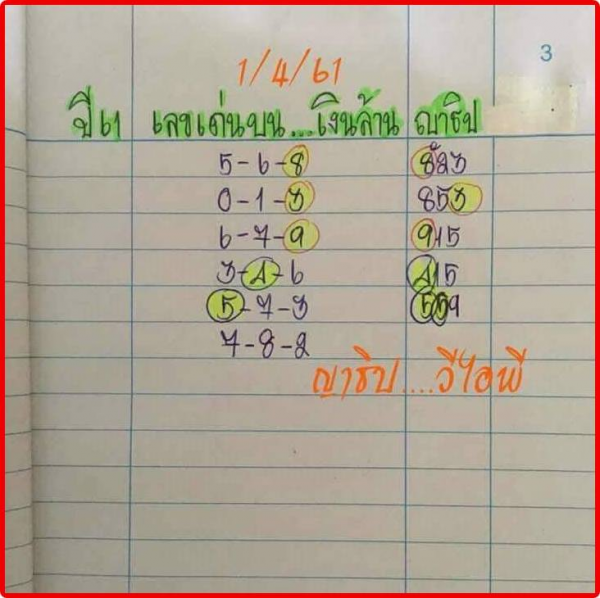 3
1/4/61
ปี 61 เลขเด่นบน...เงินล้าน ญาธิป
5-6-8 823
0-1-3 853
6-7-9 915
3-4-6 415
5-7-3 559
7-8-2
ญาธิป....วีไอพี